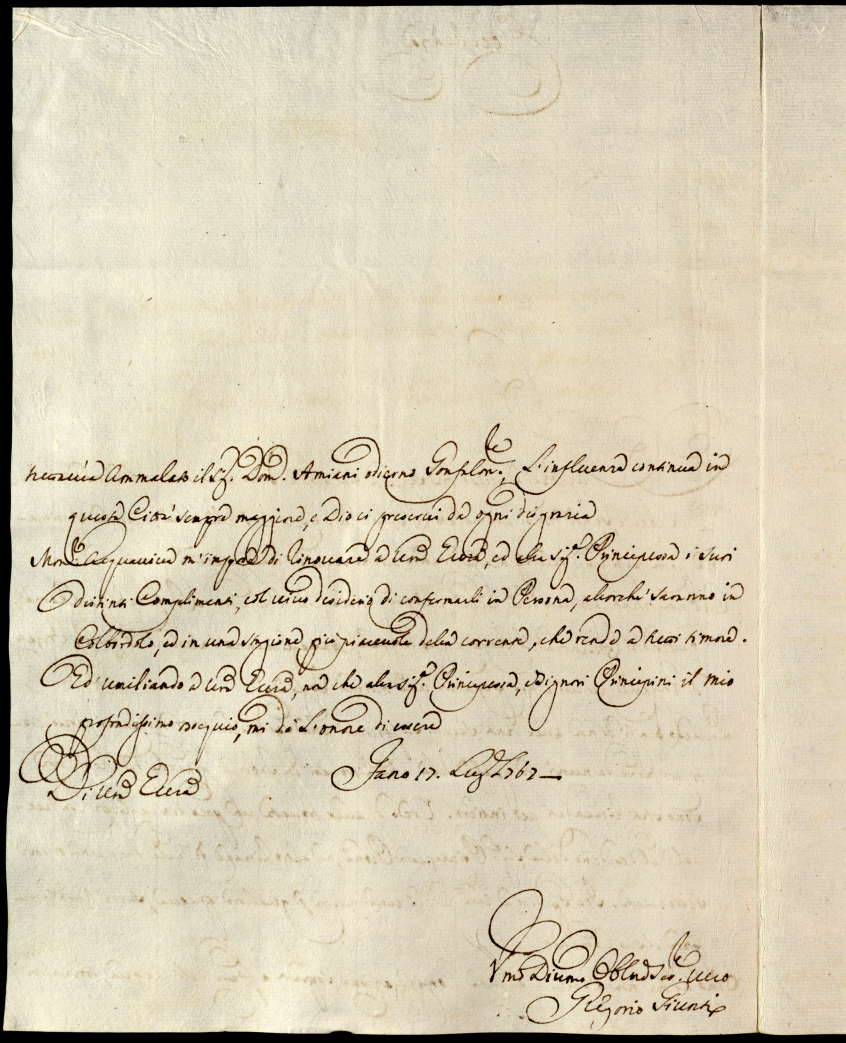 ammalato il Sig.r Dom.o Amiani odierno Gonfalon.re, L'influenza continua in
questa Città sempre maggiore, e Dio ci preservi da ogni disgrazia
Mons.r Acquaviva m'impone di rinovare a Vrã Eccza, ed alla Sig.ra Principessa i suoi
distinti Complimenti, col vivo desiderio di confermarli in Persona, allorchè saranno in
Colbordolo, ed in una stagione più piacevole della corrente, che rende a tutti timore.
Ed umiliando a Vrã Eccza, non che alla Sig.ra Principessa, e Signori Principini il mio
profondissimo ossequio, mi dò l'onore di essere
Di Vrã Eccza Fano 17. Lug.o 1767
Vmõ Divmõ Obblmõ Ser.re vero
Gregorio Giunti